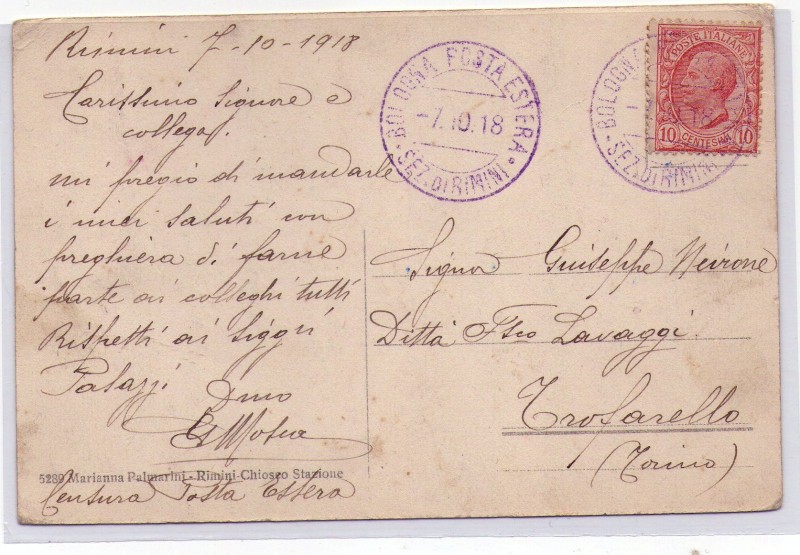 Rimini 7-10-1918
Carissimo Signore e
collega.
mi pregio di mandarle
i miei saluti con
preghiera di farne
parte ai colleghi tutti
Rispetti ai Siggri
Palazzi
Dmo
5289 Marianna Palmarini - Rimini-Chiosco Stazione
Censura Posta Estera
BOLOGNA POSTA ESTERA
-7.10.18
SEZ. DI RIMINI
BOLOGNA
18
SEZ. DI RIMINI
POSTE ITALIANE
10 CENTESIMI 10
Signor Giuseppe Neirone
Ditta Fsco Lavaggi
Trofarello
(Torino)